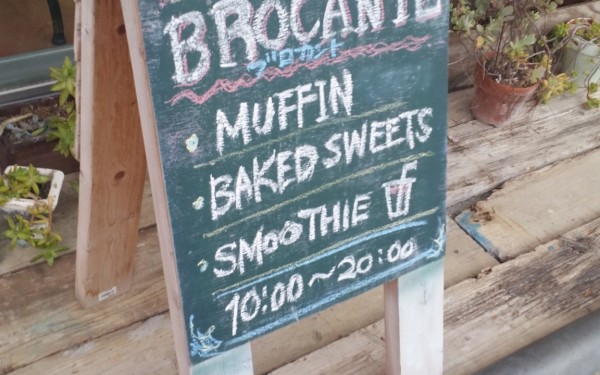 BROCANTE
ブロカント
MUFFIN
BAKED SWEETS
SMOOTHIE
10:00~20:00